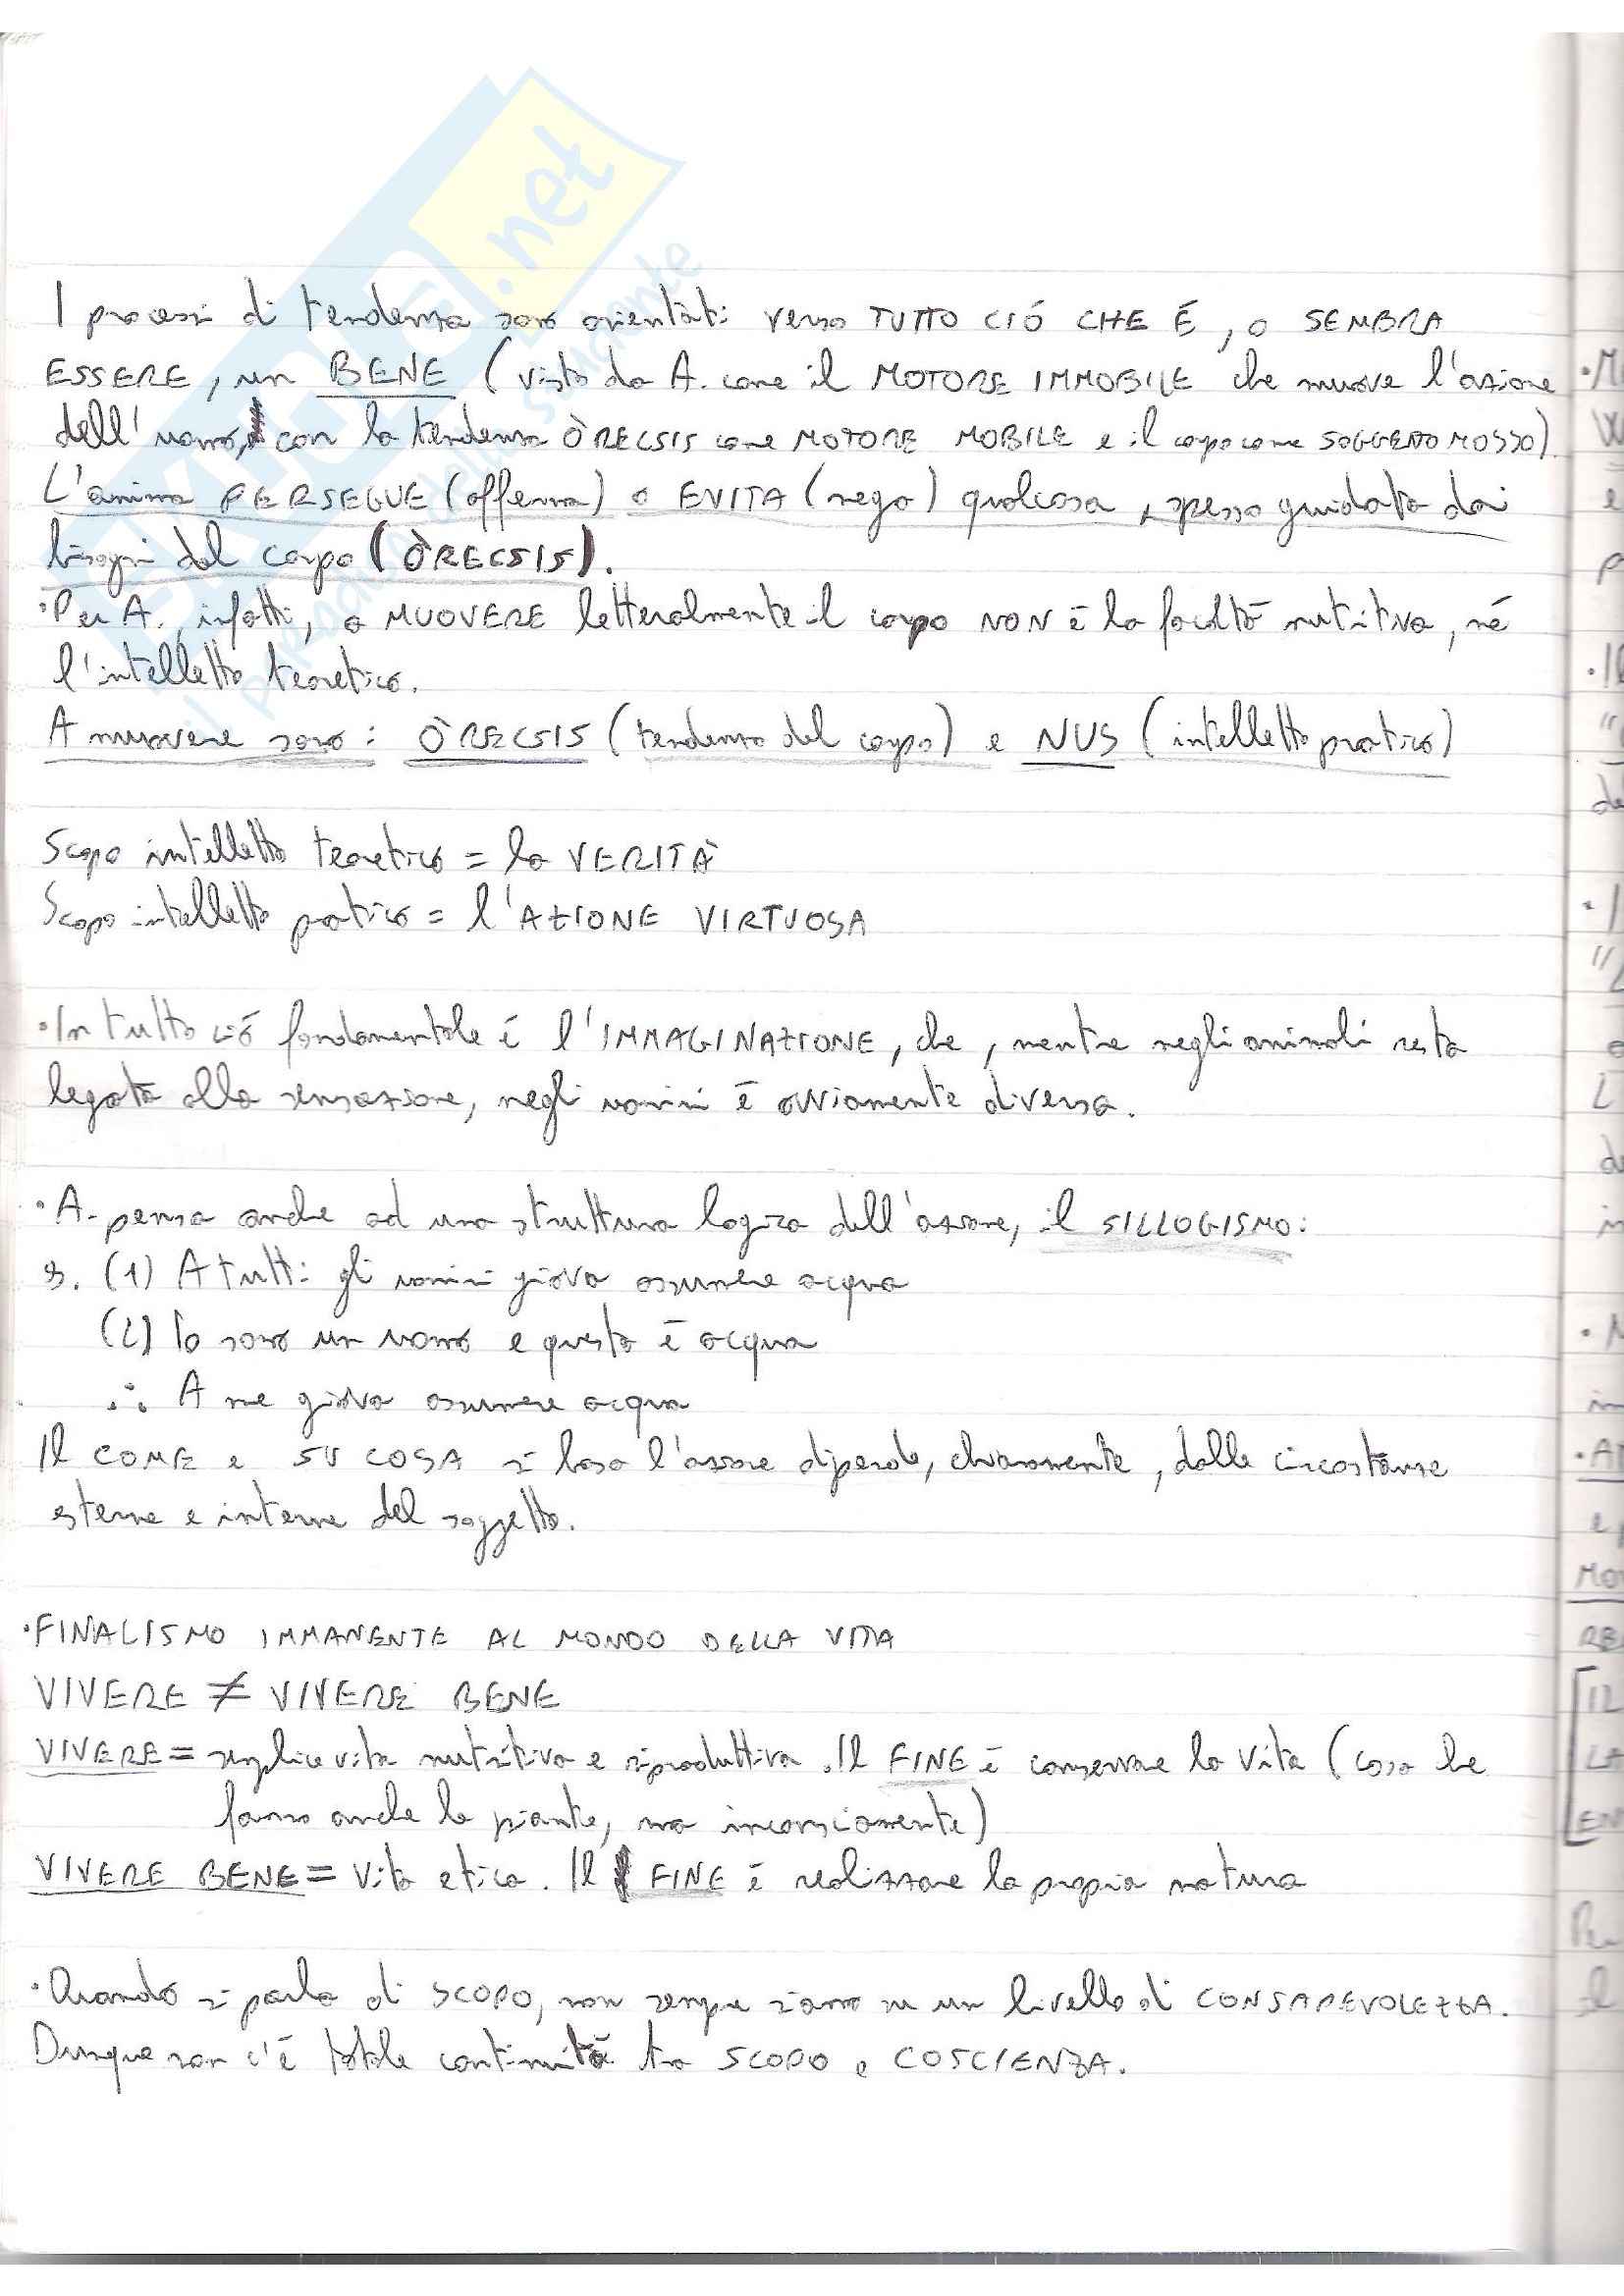 I processi di tendenza sono orientati verso TUTTO CIÓ CHE É, O SEMBRA
ESSERE, un BENE (visto da A. come il MOTORE IMMOBILE che muove l'azione
dell'uomo, con la tendenza ÒRECSIS come MOTORE MOBILE e il corpo come SOGGETTO MOSSO).
L'anima PERSEGUE (afferma) o EVITA (nega) qualcosa, spesso guidata dai
bisogni del corpo (ÒRECSIS).
·Per A. infatti, a MUOVERE letteralmente il corpo NON è la facoltà nutritiva, né
l'intelletto teoretico.
A muovere sono: ÒRECSIS (tendenza del corpo) e NUS (intelletto pratico)
Scopo intelletto teoretico = la VERITÀ
Scopo intelletto pratico = l'AZIONE VIRTUOSA
·In tutto ció fondamentale é l'IMMAGINAZIONE, che, mentre negli animali resta
legata alla sensazione, negli uomini è ovviamente diversa.
·A. pensa anche ad una struttura logica dell'azione, il SILLOGISMO:
es. (1) A tutti gli uomini giova assumere acqua
(2) Io sono un uomo e questa è acqua
∴ A me giova assumere acqua
Il COME e SU COSA si basa l'azione dipende, chiaramente, dalle circostanze
esterne e interne del soggetto.
·FINALISMO IMMANENTE AL MONDO DELLA VITA
VIVERE ≠ VIVERE BENE
VIVERE = semplice vita nutritiva e riproduttiva. Il FINE è conservare la vita (cosa che
fanno anche le piante, ma inconsciamente)
VIVERE BENE = Vita etica. Il FINE é realizzare la propria natura
·Quando si parla di SCOPO, non sempre siamo su un livello di CONSAPEVOLEZZA.
Dunque non c'è totale continuità tra SCOPO e COSCIENZA.
.net